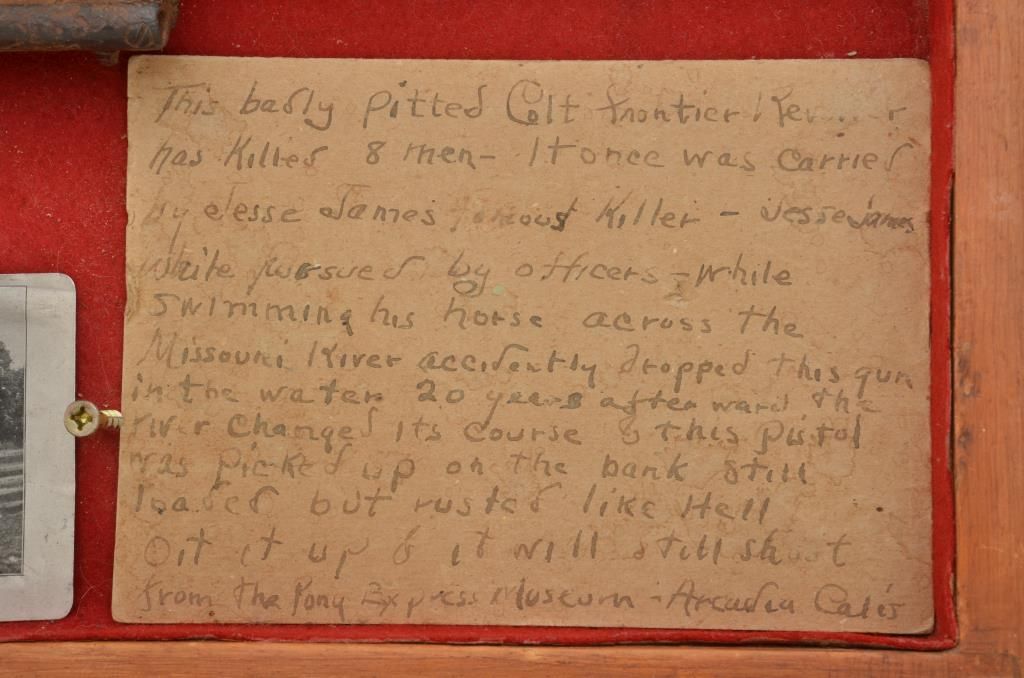 This badly pitted Colt frontier
has Killed 8 men - It once was carried
by Jesse James famous Killer - Jesse James
while pursued by officers - while
swimming his horse across the
Missouri River accidently dropped this gun
in the water 20 years after ward the
river changed its course & this pistol
was picked up on the bank still
loaded but rusted like Hell
Oil it up & it will still shoot
from The Pony Express Museum - Arcadia Calif